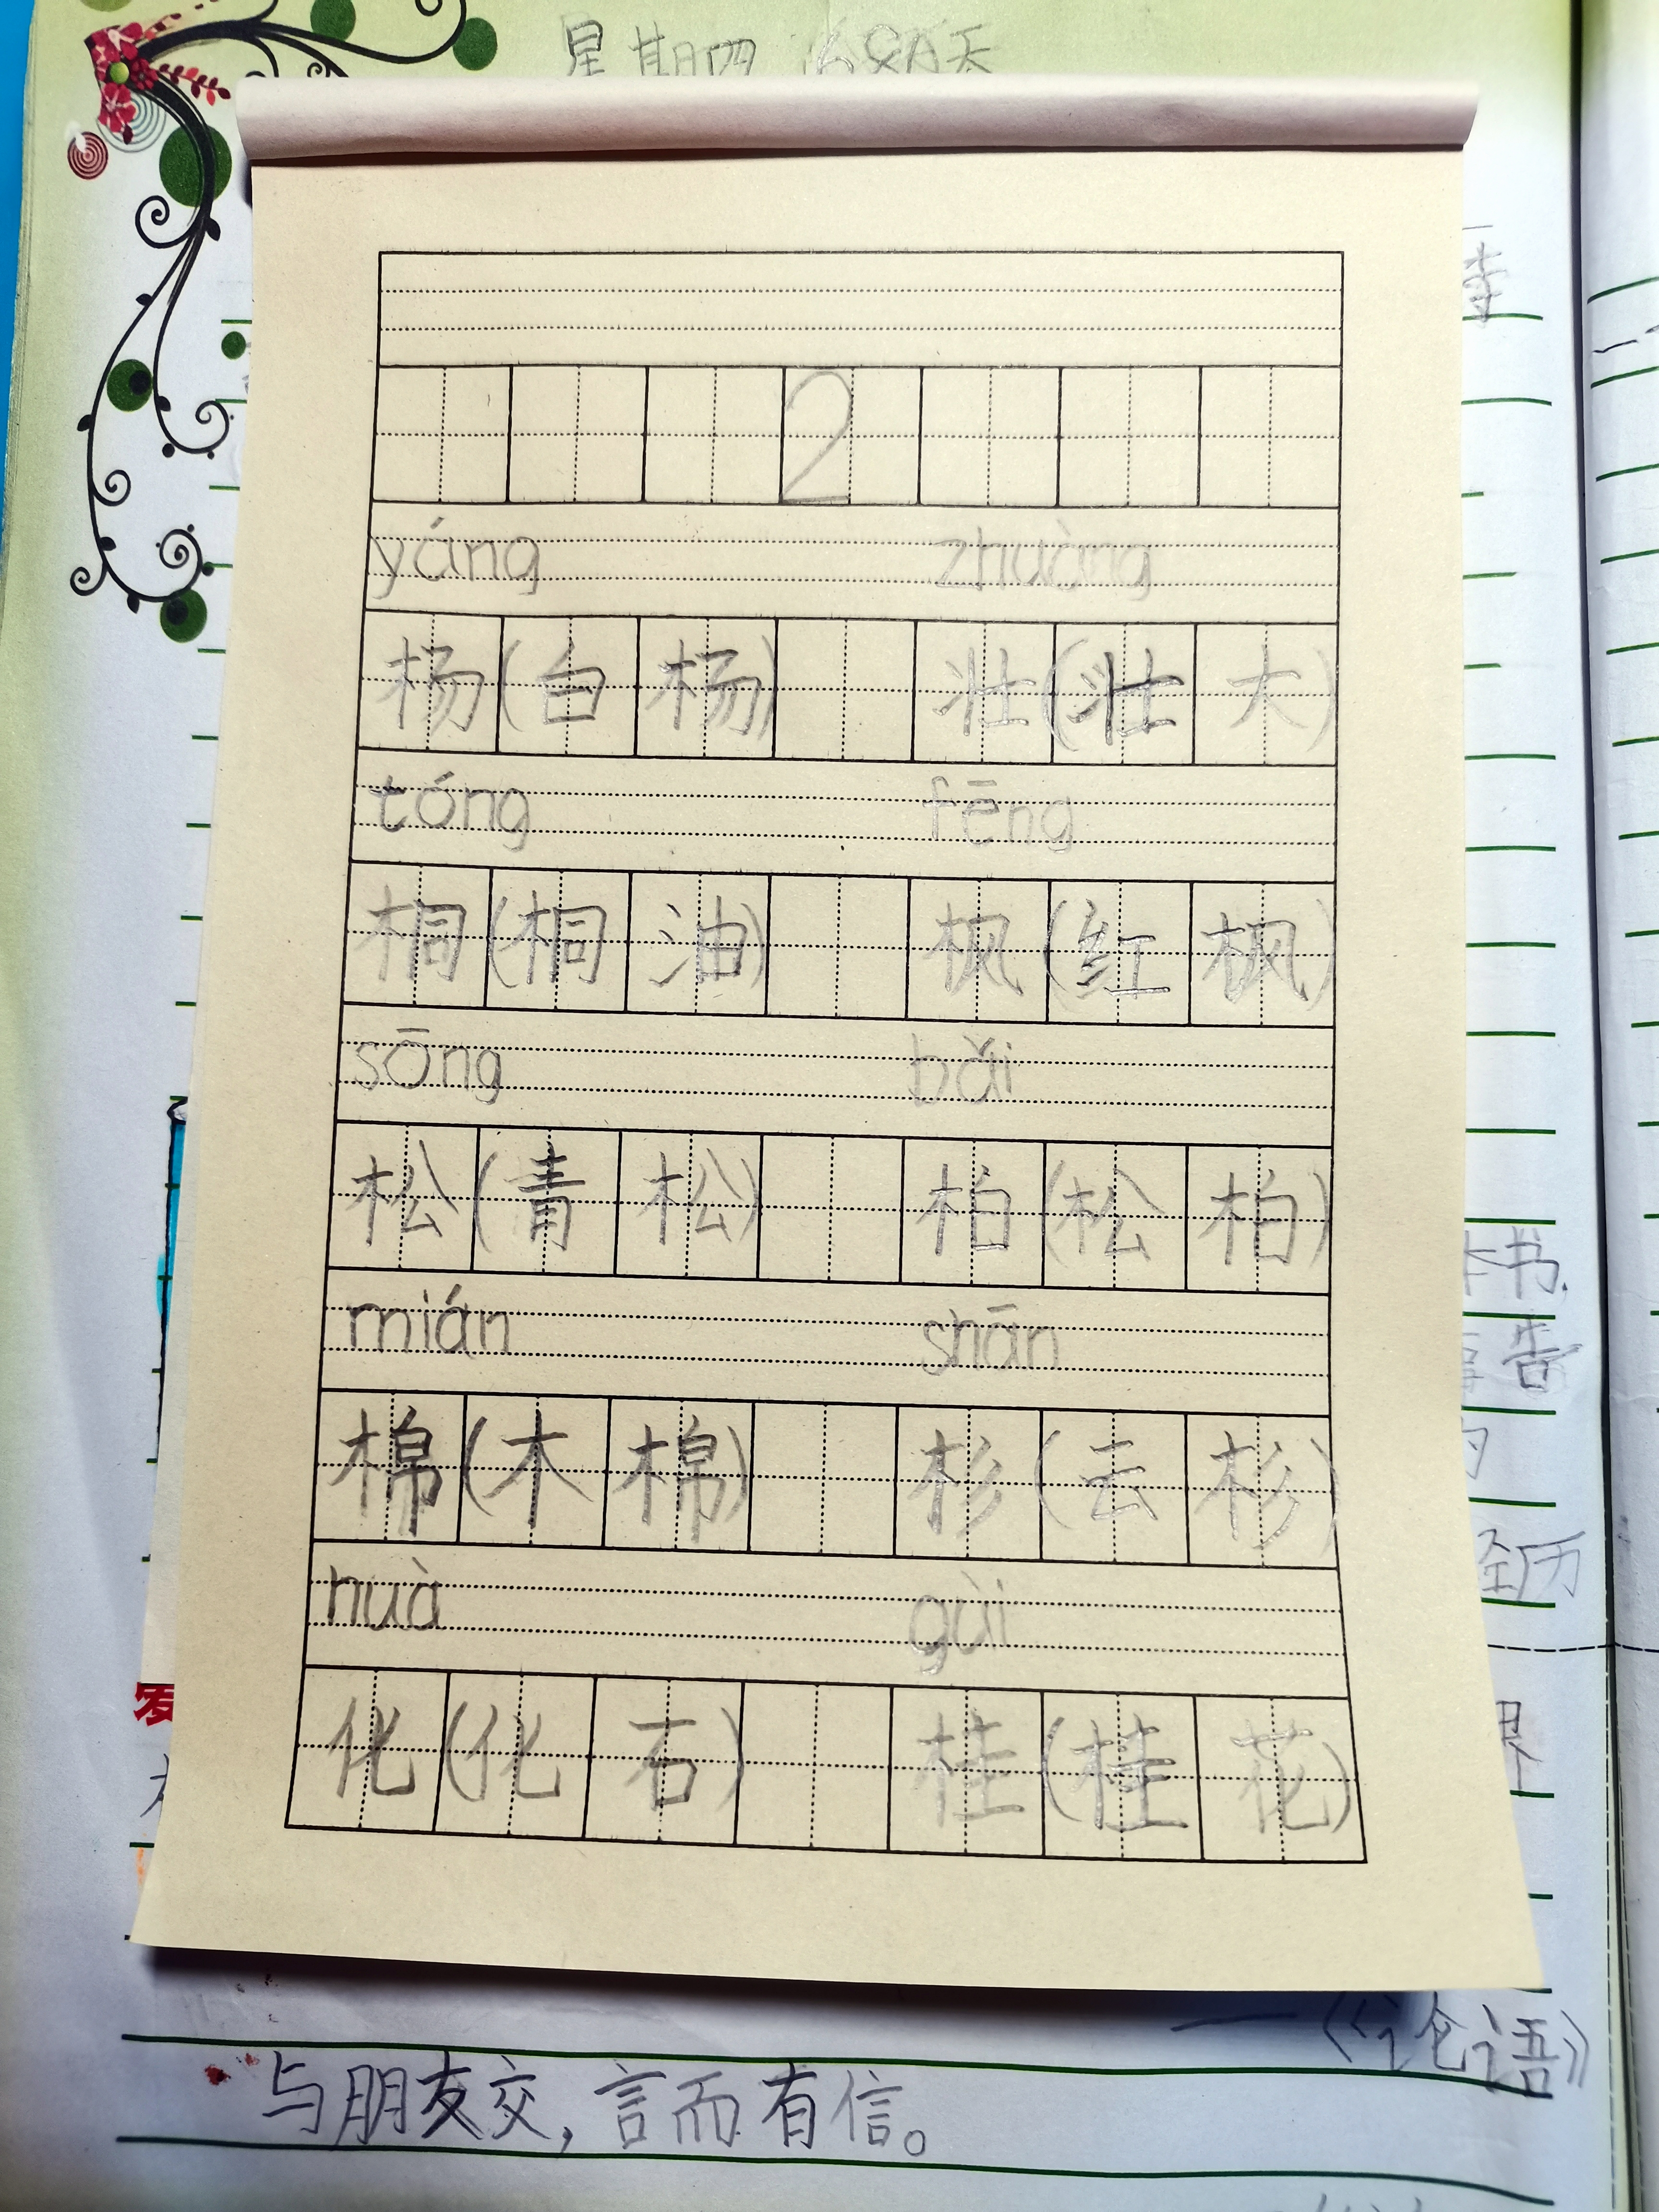 星期四
2
yáng zhuàng
杨(白杨) 壮(壮大)
tóng fēng
桐(桐油) 枫(红枫)
sōng bǎi
松(青松) 柏(松柏)
mián shān
棉(木棉) 杉(云杉)
huà gùi
化(化石) 桂(桂花)
书.
告
经历
——《论语》
与朋友交,言而有信。